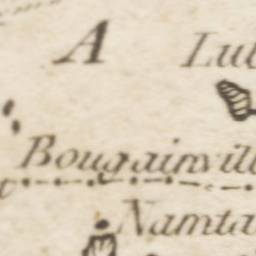 A Lut
Bougainvill
Namta